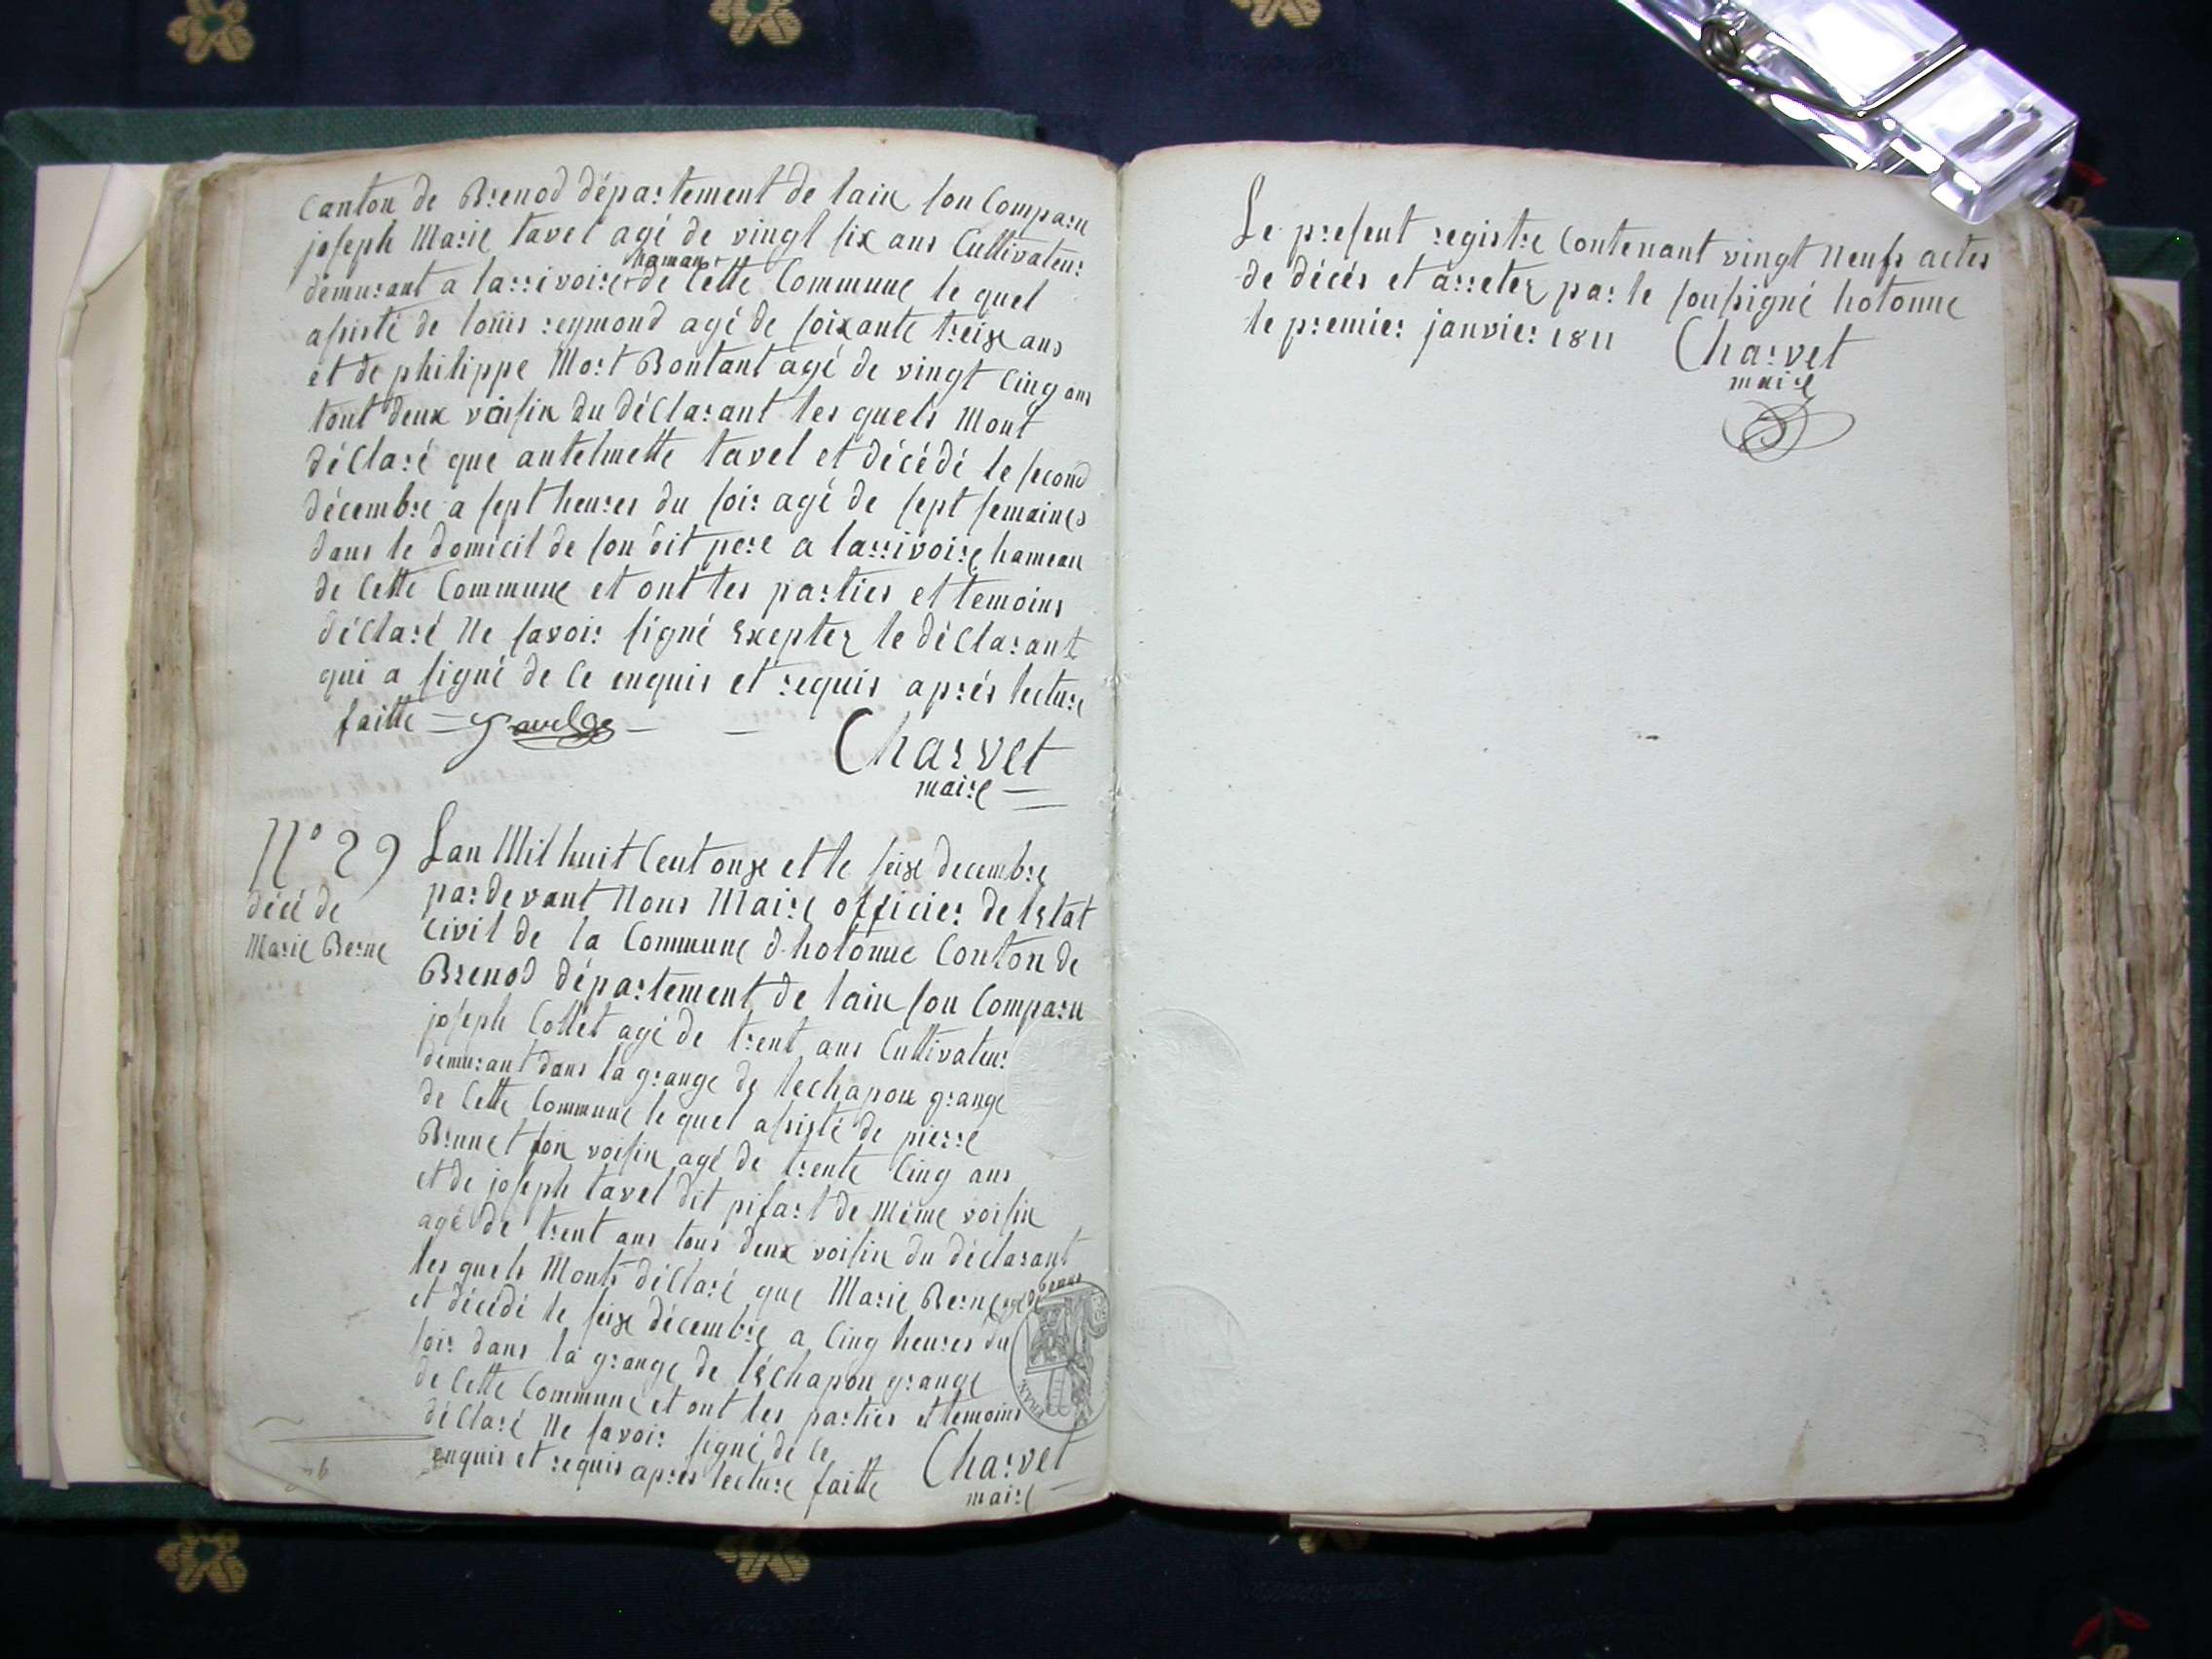 Canton de Brenod département de lain son Comparu
joseph Marie tavel agé de vingt six ans Cultivateur
hamau
demurant a larrivoire de Cette Commune le quel
asisté de loüis reymond agé de soixante treize ans
et de philippe Mort Bontant agé de vingt Cinq ans
tout deux voisin du déClarant les quels Mont
déClaré que antelmette tavel et décédé le second
décembre a sept heures du soir agé de sept semaines
dans le domicil de son dit pere a larrivoire hameau
de Cette Commune et ont les parties et temoins
déClaré Ne savoir signé Exepter le déClarant
qui a signé de Ce enquis et requis aprés lecture
faitte
Charvet
maire
N° 29
décé de
Marie Berne
Lan Mil huit Cent onze et le seize decembre
par devant Nous Maire officier de lEtat
Civil de la Commune d hotonne Conton de
Brenod département de lain son Comparu
joseph Collet agé de trent ans Cultivateur
demurant dans la grange de lechapon grange
de Cette Commune le quel asisté de pierre
Brunet son voisin agé de trente Cinq ans
et de joseph tavel dit pifart de Méme voisin
agé de trent ans tous deux voisin du déclarant
les quels Monts déClaré que Marie Berne agé de
et décédé le seize décembre a Cinq heures du
soir dans la grange de lEchapon grange
de Cette Commune et ont les parties et temoins
déClaré Ne savoir signé de Ce
enquis et requis apres lecture faitte
Charvet
maire
FRAN
Le present registre Contenant vingt Neufs actes
de décés et arreter par le sousigné hotonne
le premier janvier 1811
Charvet
maire